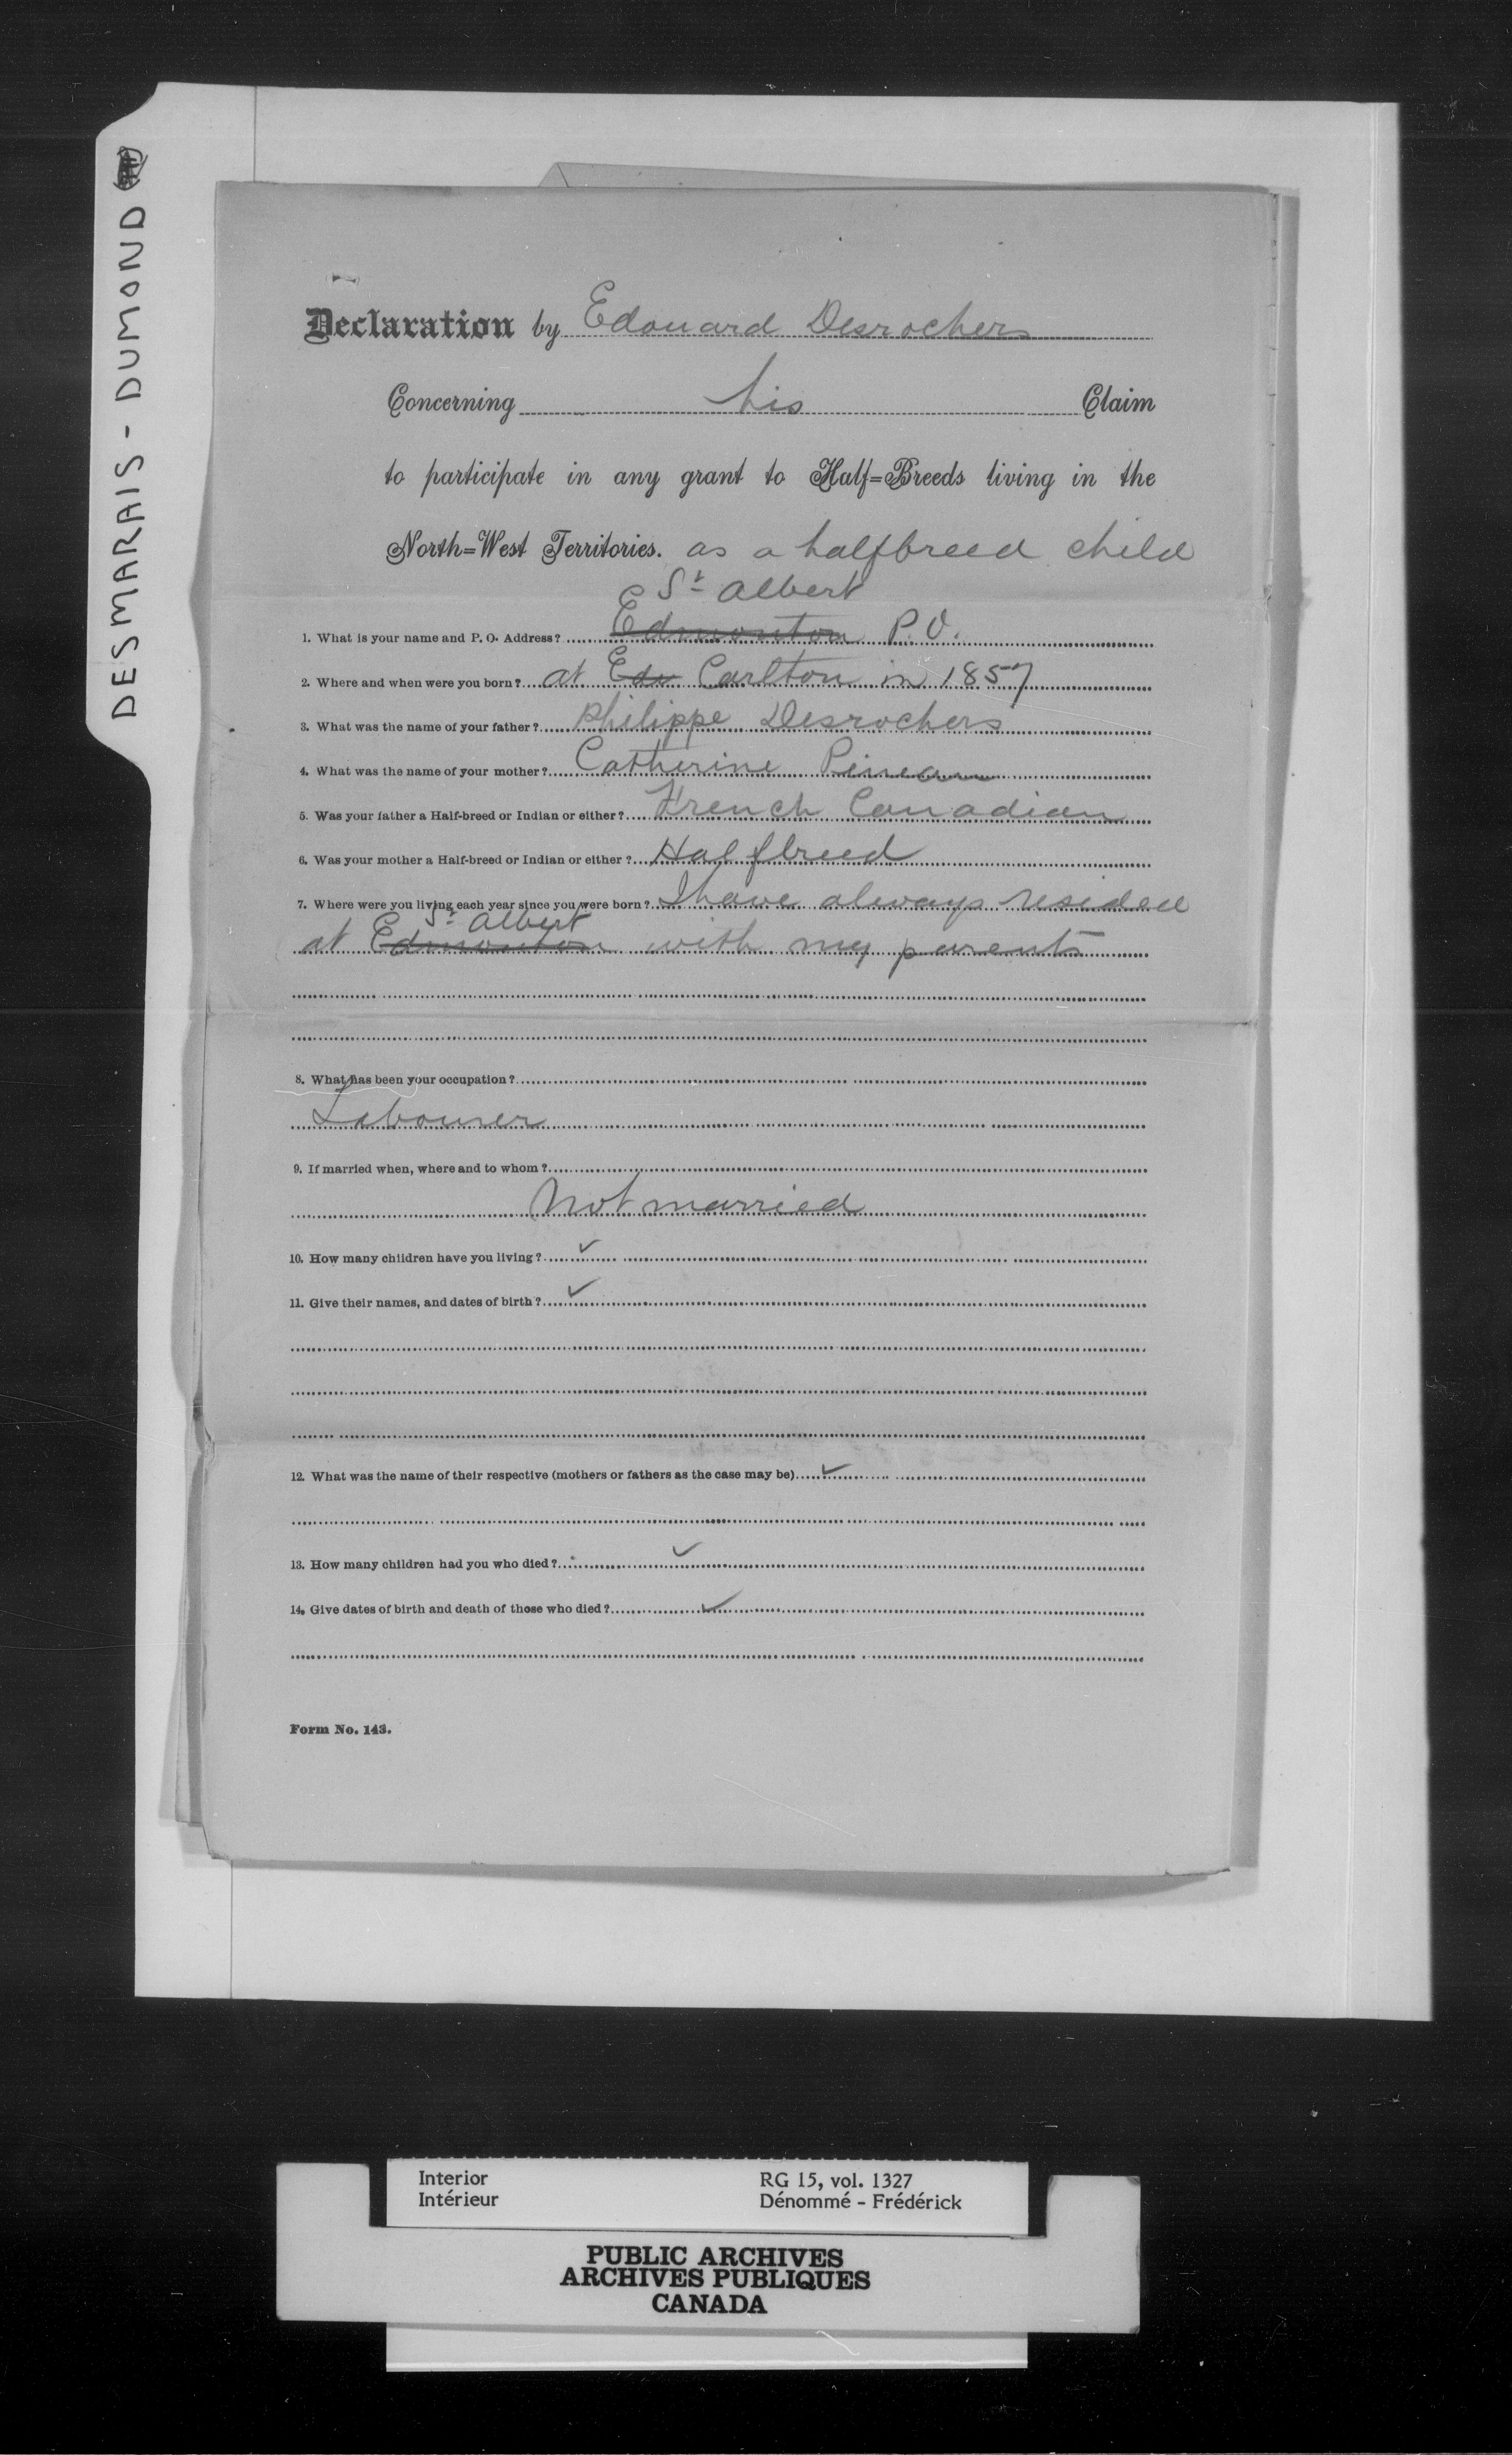 DESMARAIS - DUMOND
Declaration by Edouard Desrochers
Concerning his Claim
to participate in any grant to Half=Breeds living in the
North=West Territories. as a halfbreed child
St Albert
1. What is your name and P. O. Address? Edmonton P.O.
2. Where and when were you born? at Edm Carlton in 1857
3. What was the name of your father? Philippe Desrochers
4. What was the name of your mother? Catherine
5. Was your father a Half-breed or Indian or either? French Canadian
6. Was your mother a Half-breed or Indian or either? Halfbreed
7. Where were you living each year since you were born? I have always resided
St Albert
at Edmonton with my parents
8. What has been your occupation?
Labourer
9. If married when, where and to whom?
Not married
10. How many children have you living? ✓
11. Give their names, and dates of birth? ✓
12. What was the name of their respective (mothers or fathers as the case may be) ✓
13. How many children had you who died? ✓
14. Give dates of birth and death of those who died? ✓
Form No. 143.
Interior RG 15, vol. 1327
Intérieur Dénommé - Frédérick
PUBLIC ARCHIVES
ARCHIVES PUBLIQUES
CANADA